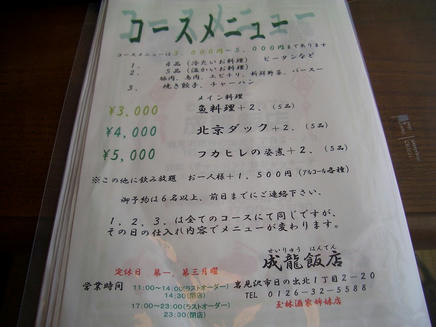 コースメニュー
コースメニューは3,000円～5,000円まであります
1. 4品（冷たいお料理） ピータンなど
2. 5品（温かいお料理）
豚肉、鳥肉、エビチリ、新鮮野菜、パースー
3. 焼き餃子、チャーハン
メイン料理
¥3,000 魚料理＋2.（5品）
¥4,000 北京ダック＋2.（5品）
¥5,000 フカヒレの姿煮＋2.（5品）
※この他に飲み放題 お一人様＋1,500円（アルコール各種）
御予約は6名以上、前日までにご連絡下さい。
1、2、3、は全てのコースにて同じですが、
その日の仕入れ内容でメニューが変わります。
せいりゅう はんてん
成龍飯店
定休日 第一、第三月曜
岩見沢市日の出北1丁目2-20
営業時間 11:00～14:00(ラストオーダー)
14:30(閉店)
TEL 0126-32-5588
17:00～23:00(ラストオーダー)
23:30(閉店)
玉林酒家姉妹店